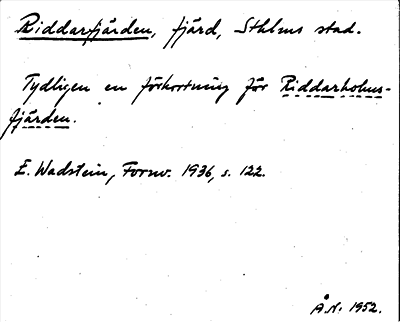 Riddarfjärden, fjärd, Sthlms stad.
Tydligen en förkortning för Riddarholms-
fjärden.
E. Wadstein, Fornv. 1936, s. 122.
Å.N. 1952.